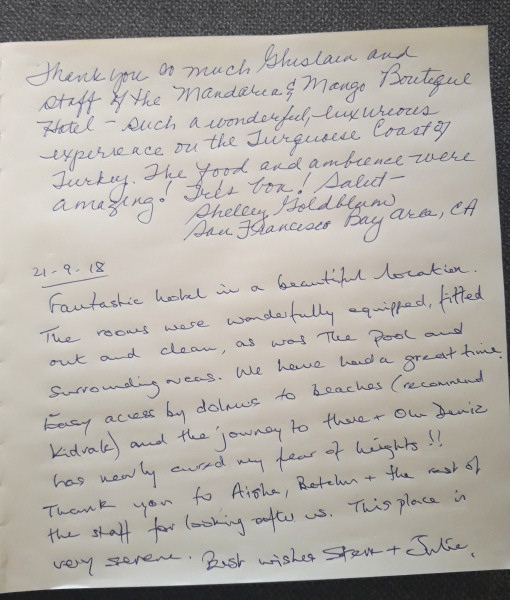 Thank you so much Ghislain and
staff of the Mandarin & Mango Boutique
Hotel - Such a wonderful, luxurious
experience on the Turquoise Coast of
Turkey. The food and ambience were
amazing! Très bon! Salut -
Shelley Goldblum
San Francisco Bay Area, CA
21-9-18
Fantastic hotel in a beautiful location.
The rooms were wonderfully equipped, fitted
out and clean, as was the pool and
surrounding areas. We have had a great time.
Easy access by dolmus to beaches (recommend
Kidrak) and the journey to there + Olu Deniz
has nearly cured my fear of heights!!
Thank you to Aisha, + the rest of
the staff for looking after us. This place is
very serene. Best wishes Steve + Julie.